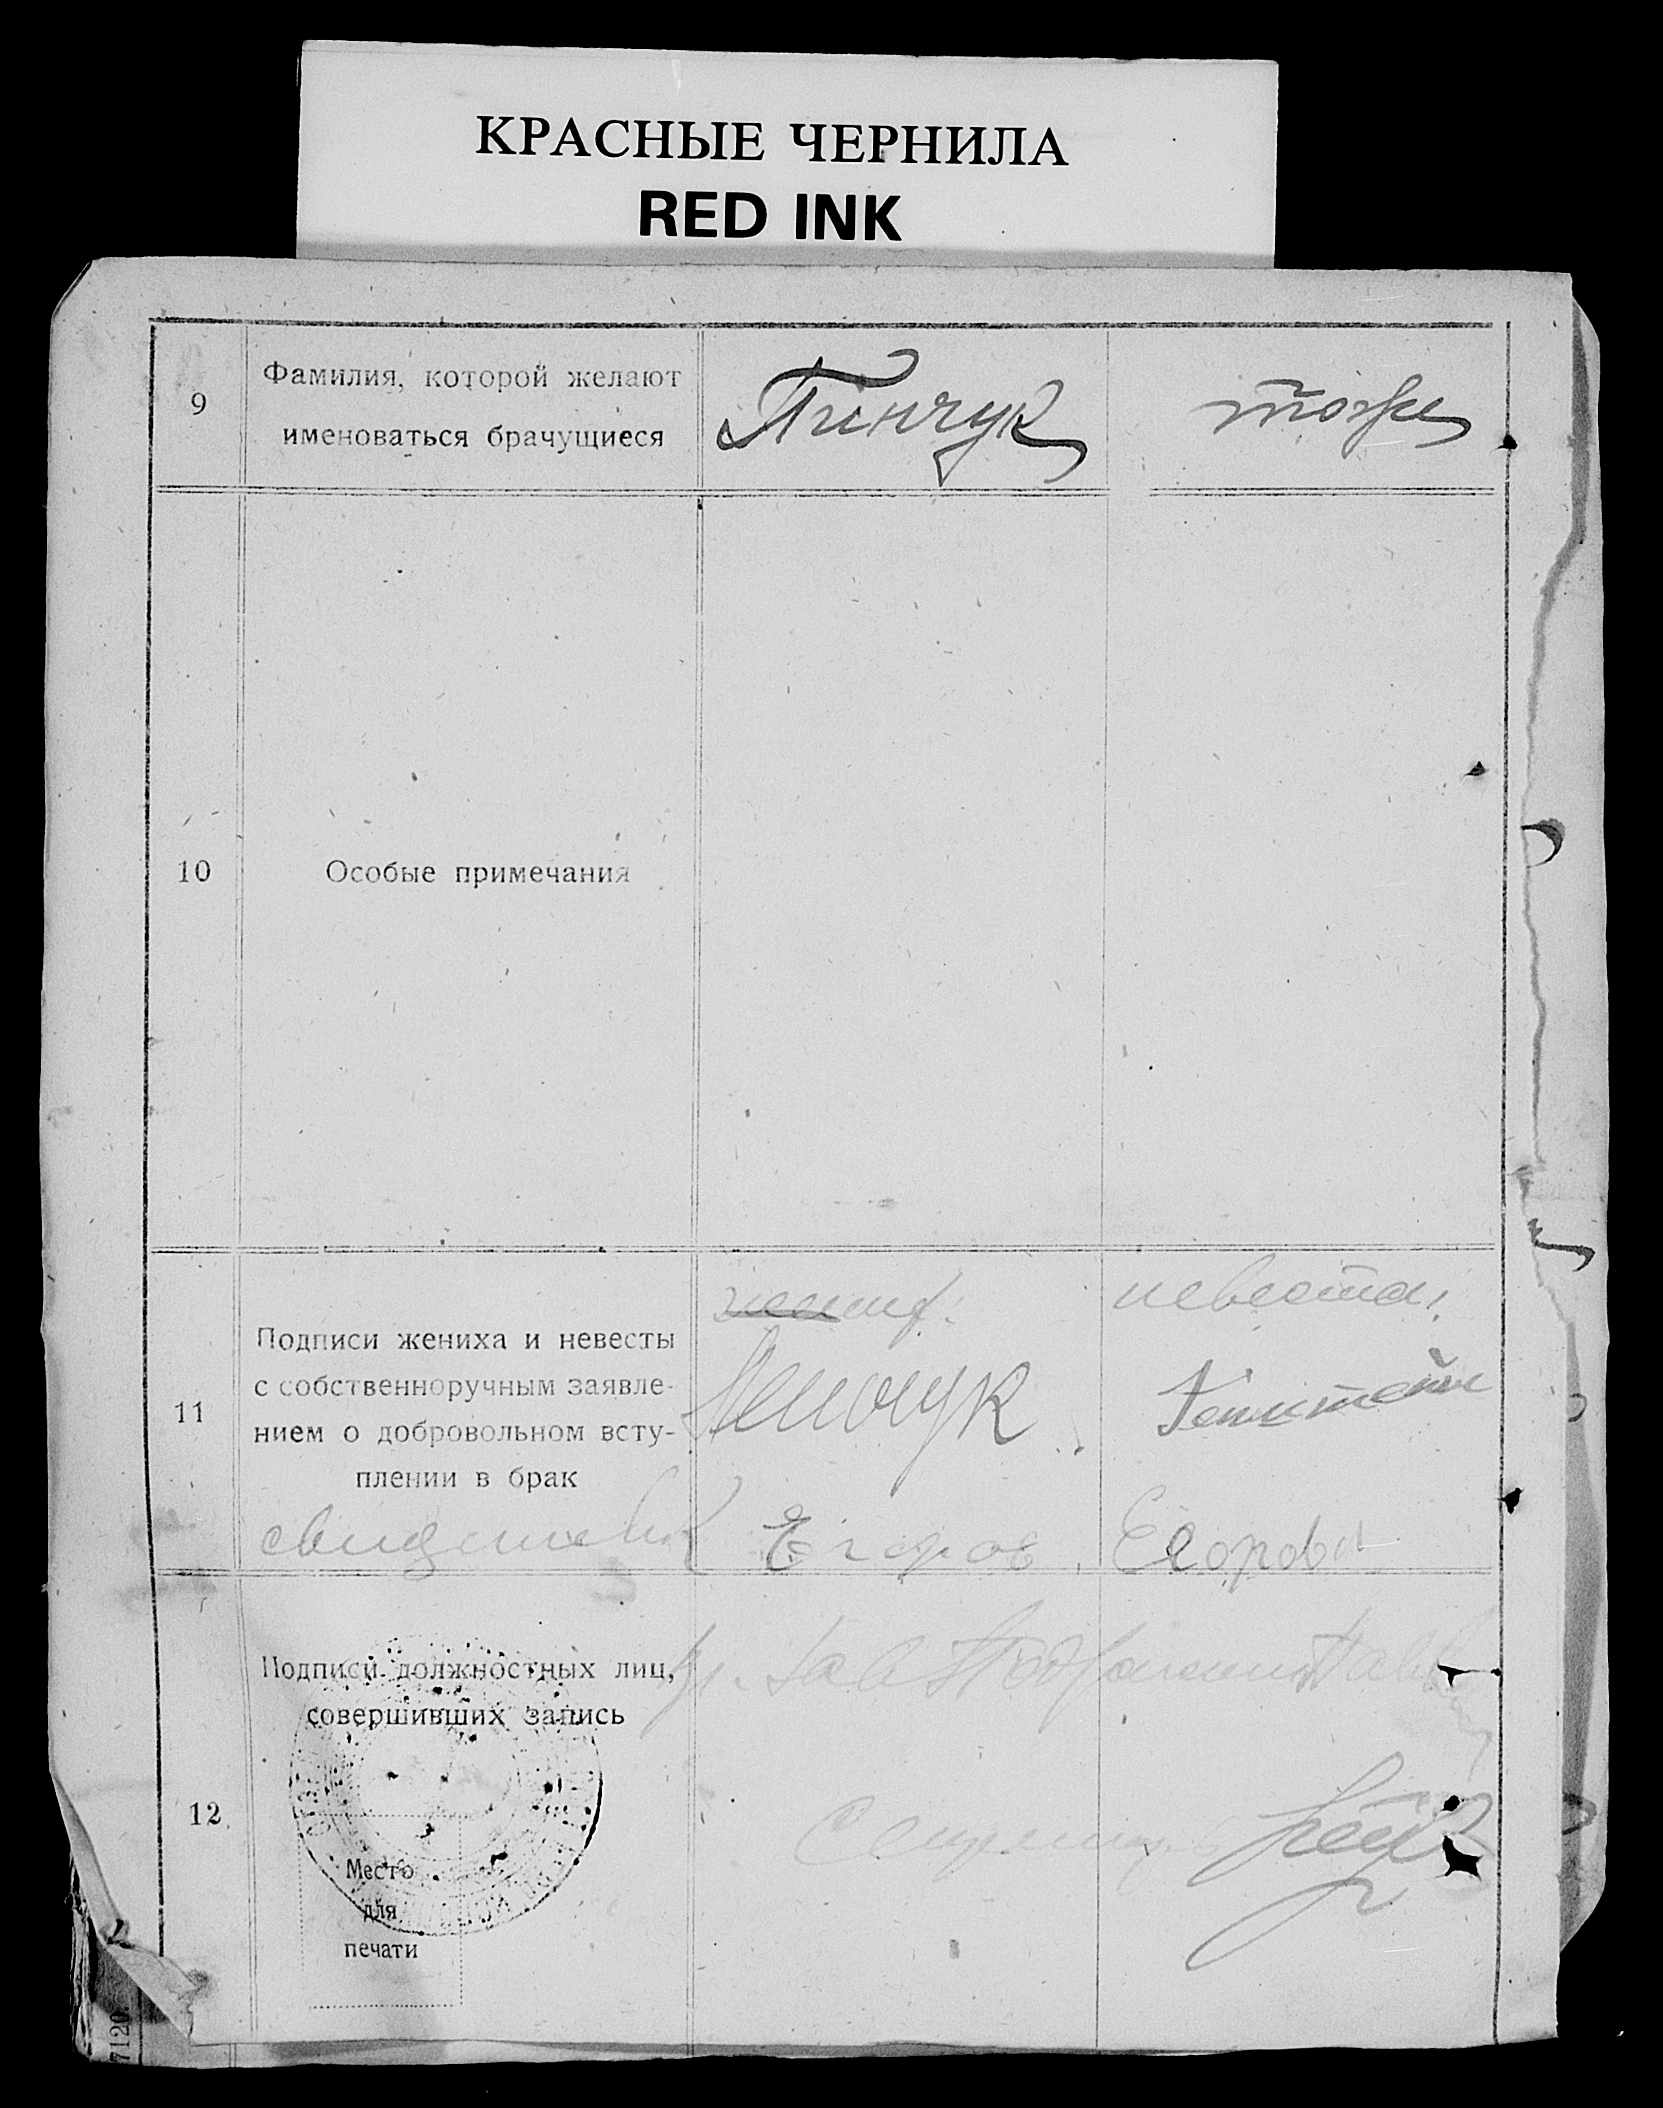 КРАСНЫЕ ЧЕРНИЛА
RED INK
9
Фамилия, которой желают
именоваться брачущиеся
Пинчук
тоже
10
Особые примечания
жених:
невеста:
11
Подписи жениха и невесты
с собственноручным заявле-
нием о добровольном всту-
плении в брак
Пинчук
свидетели
Егоров
Егорова
12
Подписи должностных лиц,
совершивших запись
Место
для
печати
7120